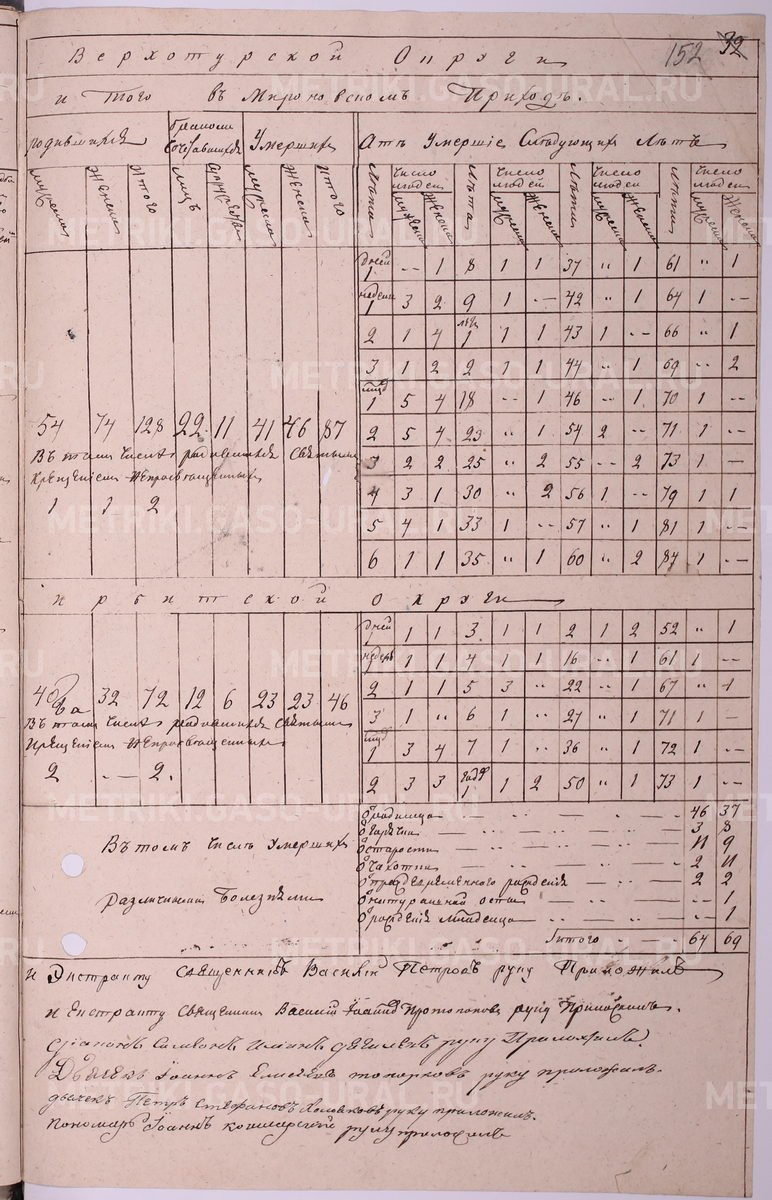 152 32
Верхотурской Округи
и того въ Мироновскомъ Приходѣ.
родившихся
Умершихъ
Атъ Умершіе Слѣдующихъ Лѣтъ
мужеска женска итого лицъ мужеска женска итого
Лѣта число людей мужеска женска Лѣта число людей мужеска женска Лѣта число людей мужеска женска Лѣта число людей мужеска женска
дней 1 -- 1 8 1 1 37 " 1 61 " 1
недели 1 3 2 9 1 -- 42 " 1 64 1 --
2 1 4 1 1 1 43 1 -- 66 " 1
3 1 2 2 1 1 44 -- 1 69 -- 2
1 5 4 18 -- 1 46 -- 1 70 1 --
2 5 4 23 " 1 54 2 -- 71 1 --
3 2 2 25 " 2 55 -- 2 73 1 --
4 3 1 30 " 2 56 1 -- 79 1 1
5 4 1 33 1 -- 57 " 1 81 1 --
6 1 1 35 " 1 60 " 2 87 1 --
54 74 128 22 11 41 46 87
Въ томъ числѣ родившихся Святымъ
Крещеніемъ Непросвѣщенныхъ
1 1 2
Ирбитской Округи
дней 1 1 1 3 1 1 2 1 2 52 " 1
недель 1 1 1 4 1 1 16 -- 1 61 1 --
2 1 1 5 3 " 22 -- 1 67 " 1
3 1 " 6 1 " 27 " 1 71 1 --
1 3 4 7 1 " 36 " 1 72 1 --
2 3 3 1 1 2 50 " 1 73 1 --
40 32 72 12 6 23 23 46
Въ томъ числѣ родившихся Святымъ
Крещеніемъ Непросвѣщенныхъ
2 -- 2.
Въ томъ числѣ Умершихъ
Различными Болезнями
Отъ родимца 46 37
Отъ горячки 3 8
Отъ старости 11 9
Отъ чахотки 2 11
Отъ преждевременного рожденія 2 2
Отъ натуральной оспы -- 1
Отъ рожденія младенца -- 1
Итого 64 69
к Экстракту Священникъ Василій Петровъ руку Приложилъ
к Екстракту священникъ Василий Протопоповъ руку Приложилъ.
руку Приложилъ.
Дьячекъ Іоаннъ Елисеевъ топорковъ руку приложилъ
дьячекъ Петръ Стефановъ руку приложилъ.
пономарь Іоаннъ руку приложилъ
METRIKI.GASO-URAL.RU